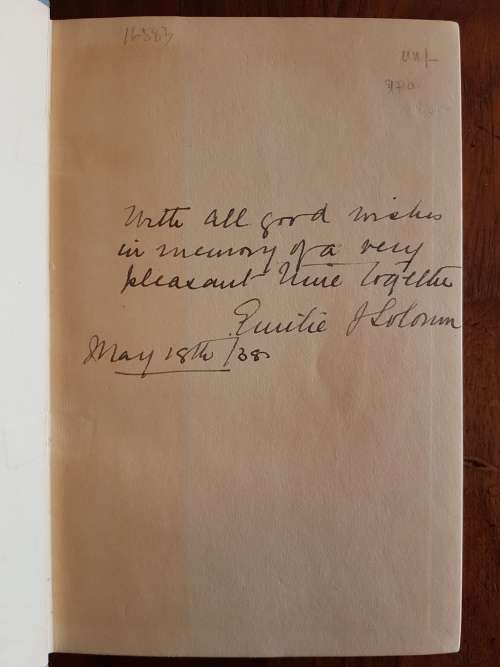 16383
With all good wishes
in memory of a very
pleasant time together
Emilie J Solomon
May 18th /38